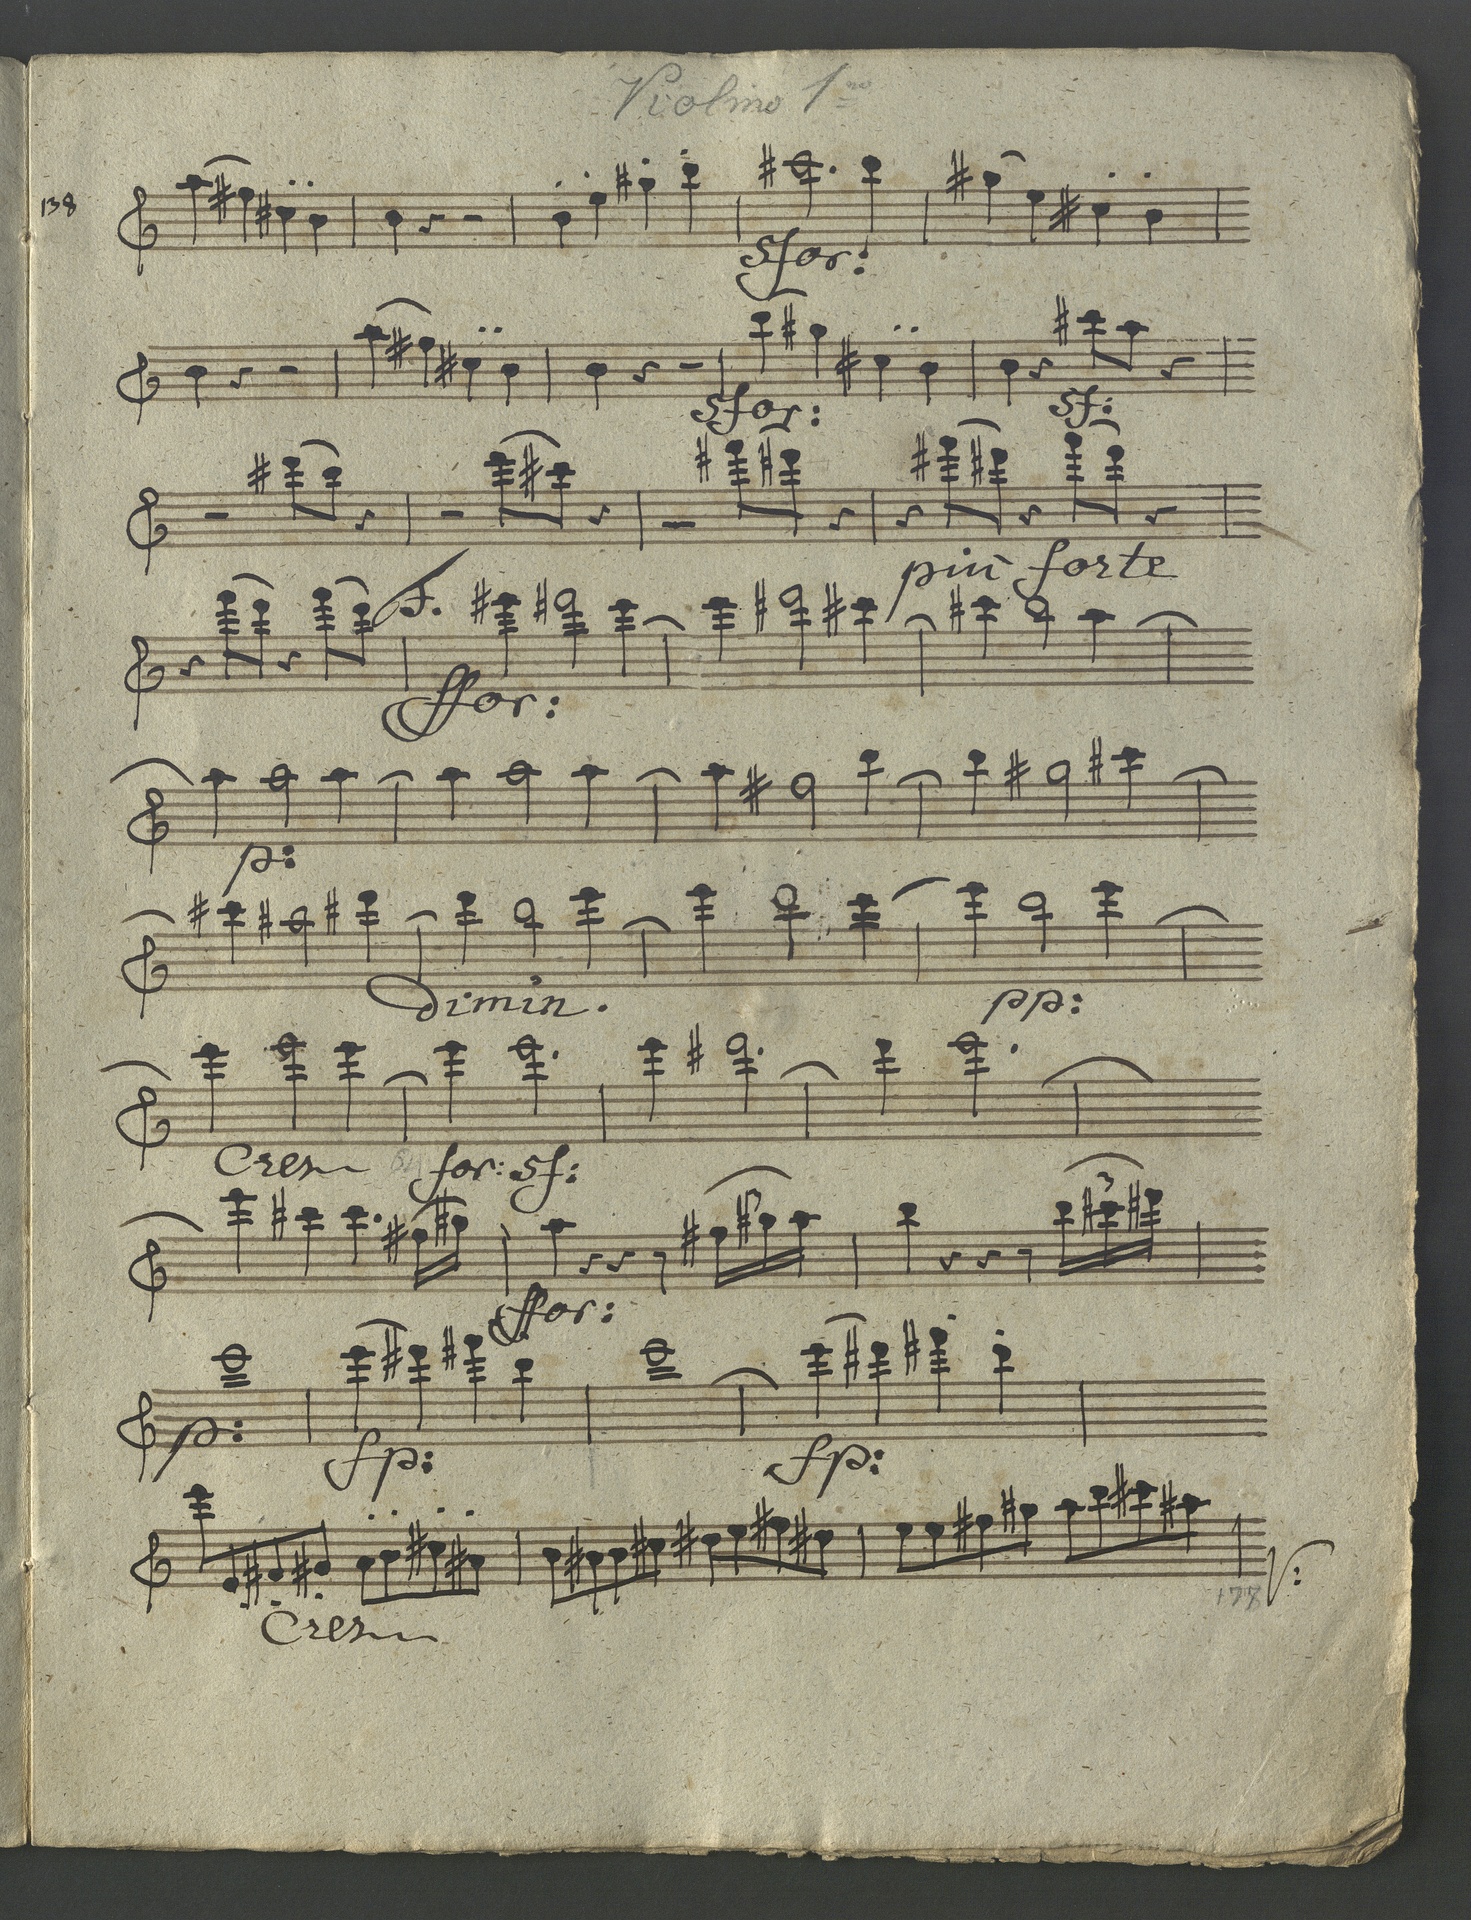 Violino 1mo
138
sfor:
sfor: sf:
più forte
f.
ffor:
p:
dimin. pp:
Cres for: sf:
3 3
ffor:
p: fp: fp:
Cres
178 V: